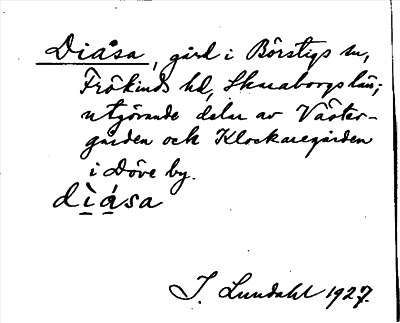 Diåsa, gård i Börstigs sn,
Frökinds hd, Skaraborgs län;
utgörande delar av Väster-
gården och Klockaregården
i Döve by.
dìása
J. Lundahl 1927.